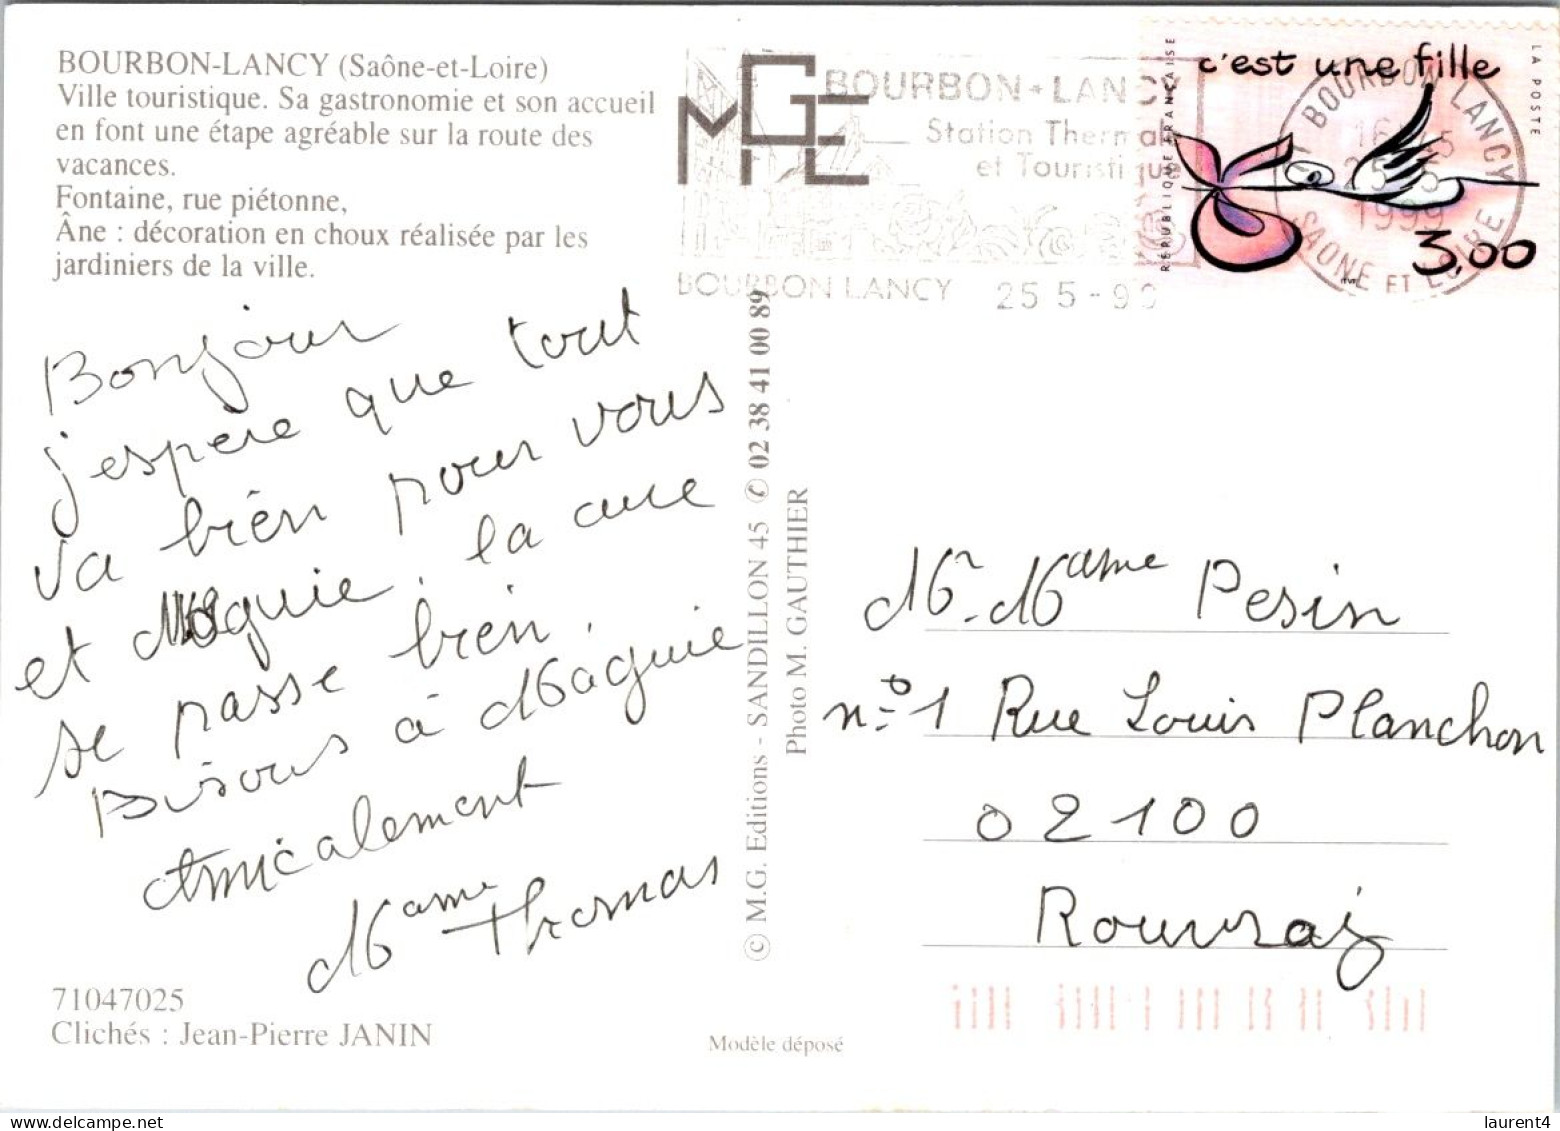 BOURBON-LANCY (Saône-et-Loire)
Ville touristique. Sa gastronomie et son accueil
en font une étape agréable sur la route des
vacances.
Fontaine, rue piétonne,
Âne : décoration en choux réalisée par les
jardiniers de la ville.
MGE
BOURBON-LANCY
Station Thermale
et Touristique
BOURBON LANCY 25 5 - 99
RÉPUBLIQUE FRANÇAISE
c'est une fille
LA POSTE
3,00
71 BOURBON LANCY
16H45
25-5
1999
SAONE ET LOIRE
Bonjour
j'espère que tout
va bien pour vous
et Maguie. la cure
se passe bien.
Bisous à Maguie
Amicalement
Mame Thomas
© M.G. Editions - SANDILLON 45 ✆ 02 38 41 00 89
Photo M. GAUTHIER
Mr. Mame Pesin
n° 1 Rue Louis Planchon
02100
Rouvroy
71047025
Clichés : Jean-Pierre JANIN
Modèle déposé
laurent4